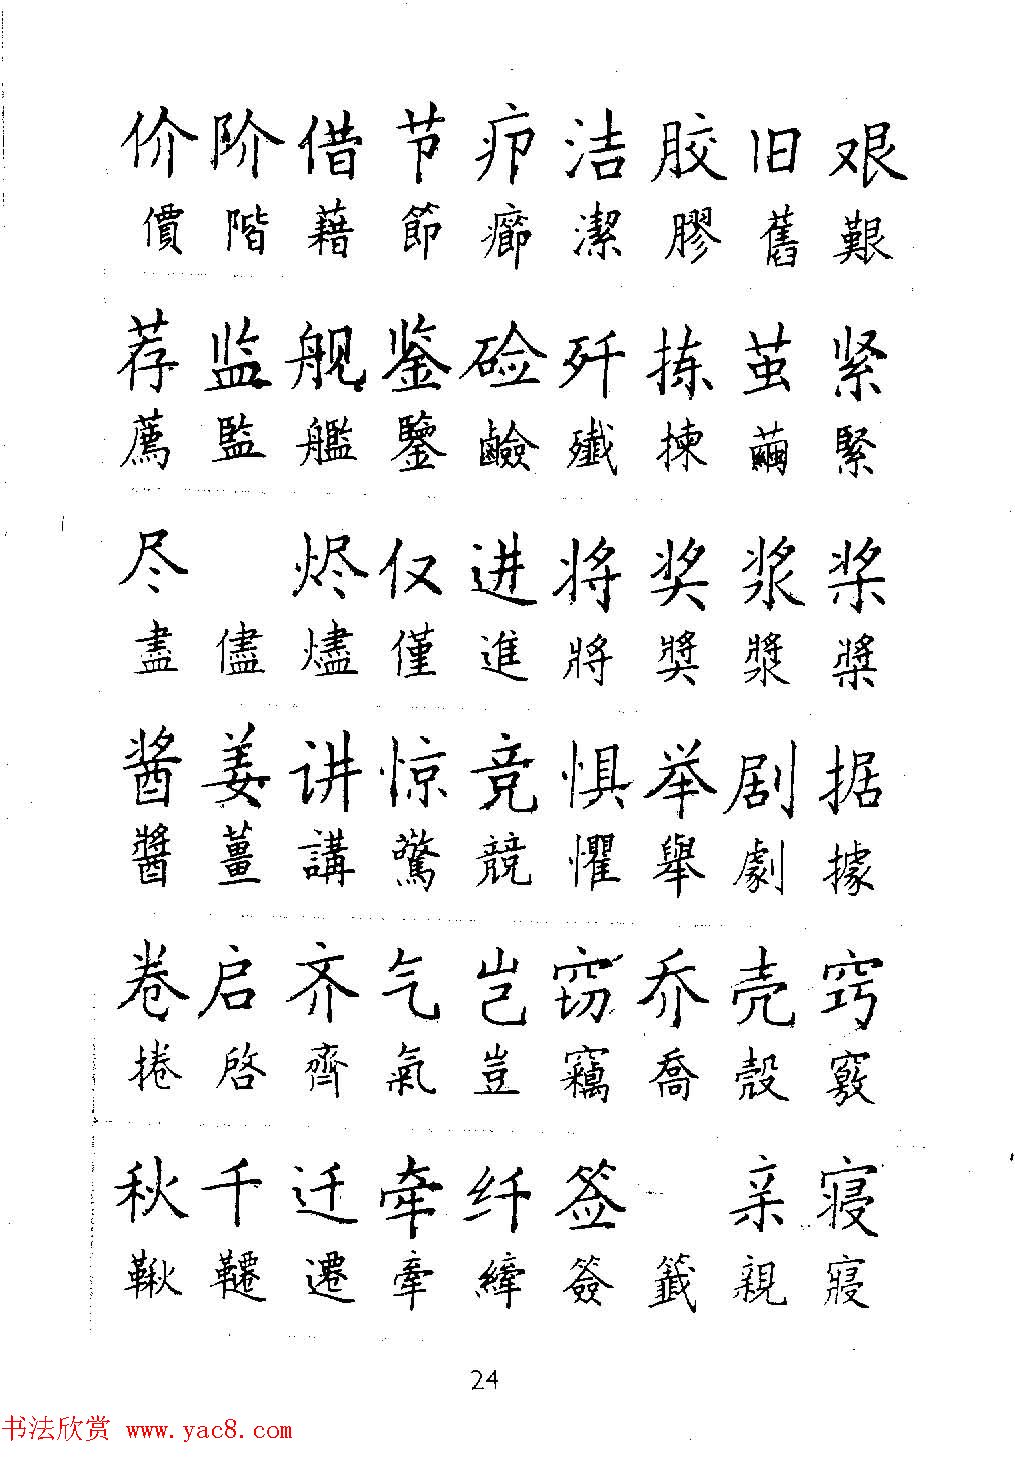 价阶借节疖洁胶旧艰
價階藉節癤潔膠舊艱
荐监舰鉴硷歼拣茧紧
薦監艦鑒鹼殲揀繭緊
尽烬仅进将奖浆桨
盡儘燼僅進將獎漿槳
酱姜讲惊竞惧举剧据
醬薑講驚競懼舉劇據
卷启齐气岂窃乔壳窍
捲啓齊氣豈竊喬殼竅
秋千迁牵纤签亲寝
鞦韆遷牽縴簽籤親寢
24
书法欣赏 www.yac8.com